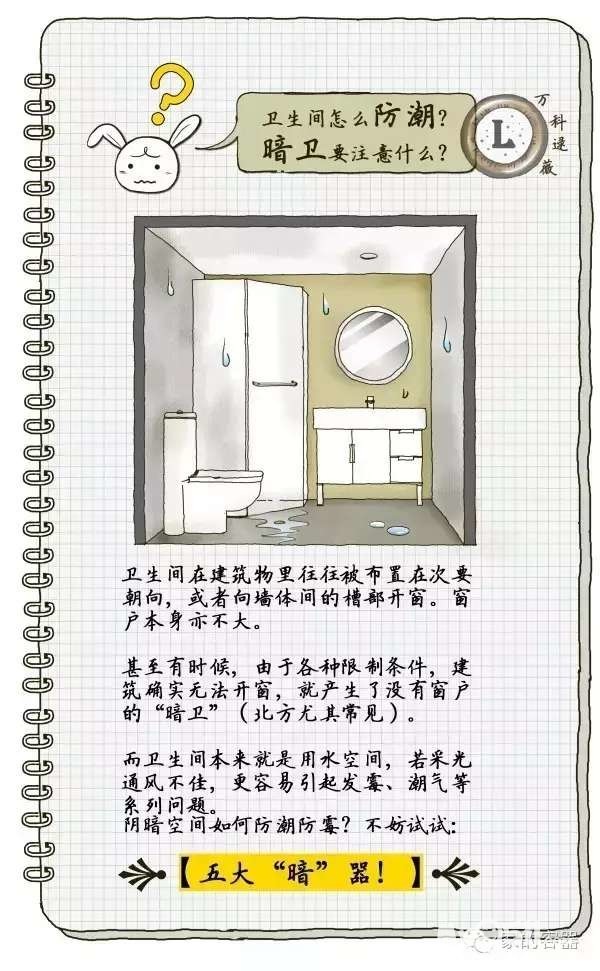 卫生间怎么防潮？
暗卫要注意什么？
L
万科逯薇
卫生间在建筑物里往往被布置在次要
朝向，或者向墙体间的槽部开窗。窗
户本身亦不大。
甚至有时候，由于各种限制条件，建
筑确实无法开窗，就产生了没有窗户
的“暗卫”（北方尤其常见）。
而卫生间本来就是用水空间，若采光
通风不佳，更容易引起发霉、潮气等
系列问题。
阴暗空间如何防潮防霉？不妨试试：
【五大“暗”器！】
家的容器